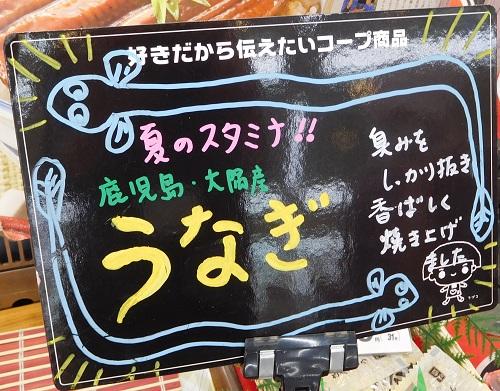 好きだから伝えたいコープ商品
夏のスタミナ!!
鹿児島・大隅産
うなぎ
臭みを
しっかり抜き
香ばしく
焼き上げ
ました